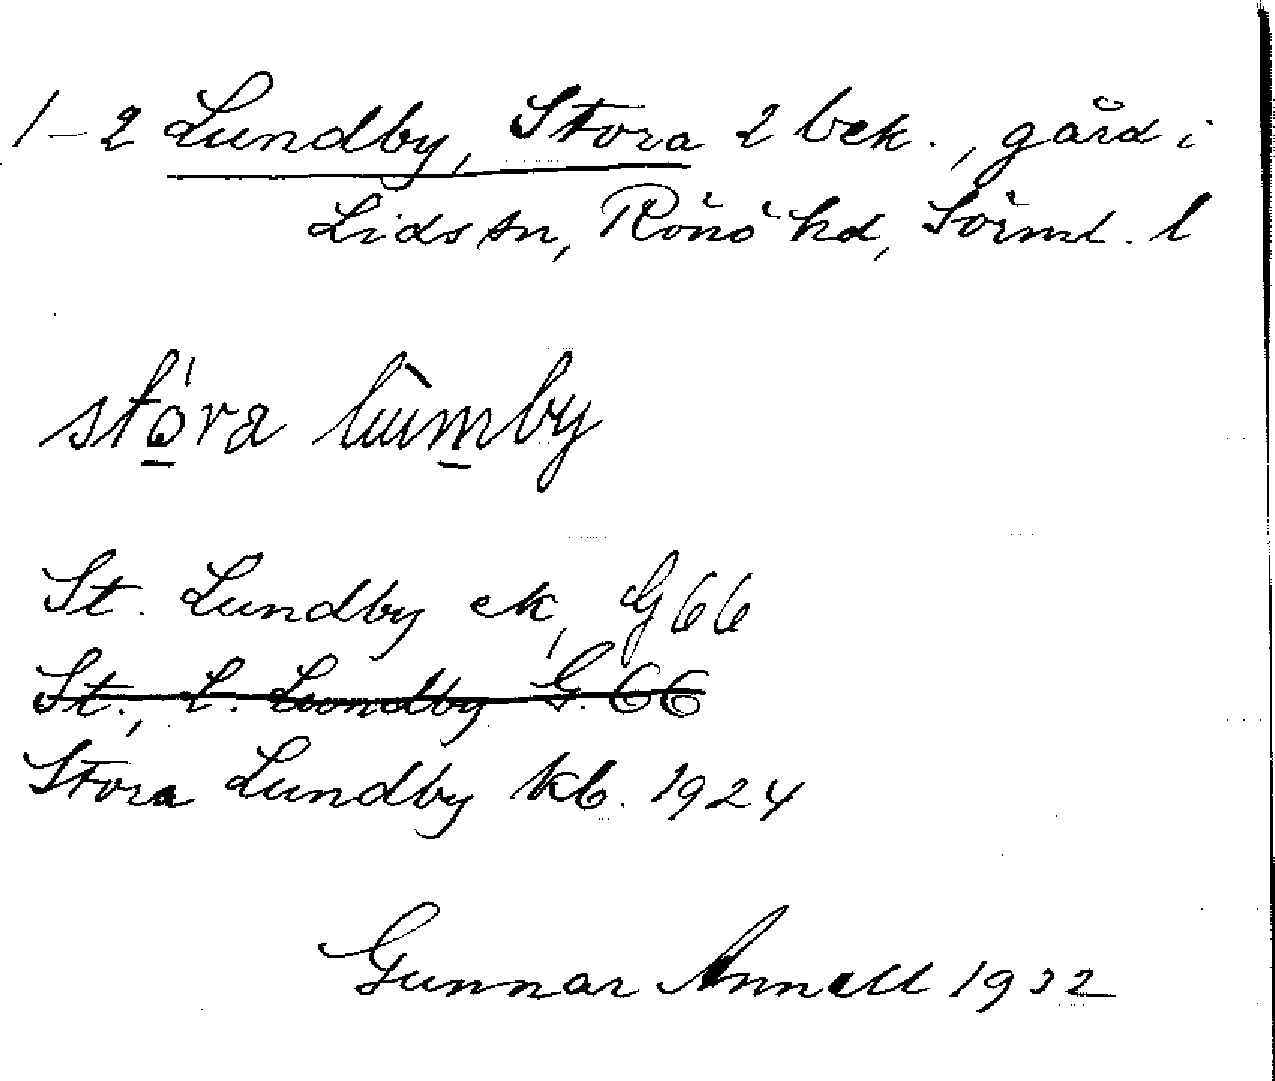 1-2 Lundby, Stora 2 bek., gård i
Lids sn, Rönö hd, Sörml. l
stó̠ra lùm̠by
St. Lundby ek, G 66
St., L. Lundby G. 66
Stora Lundby kb. 1924
Gunnar Annell 1932